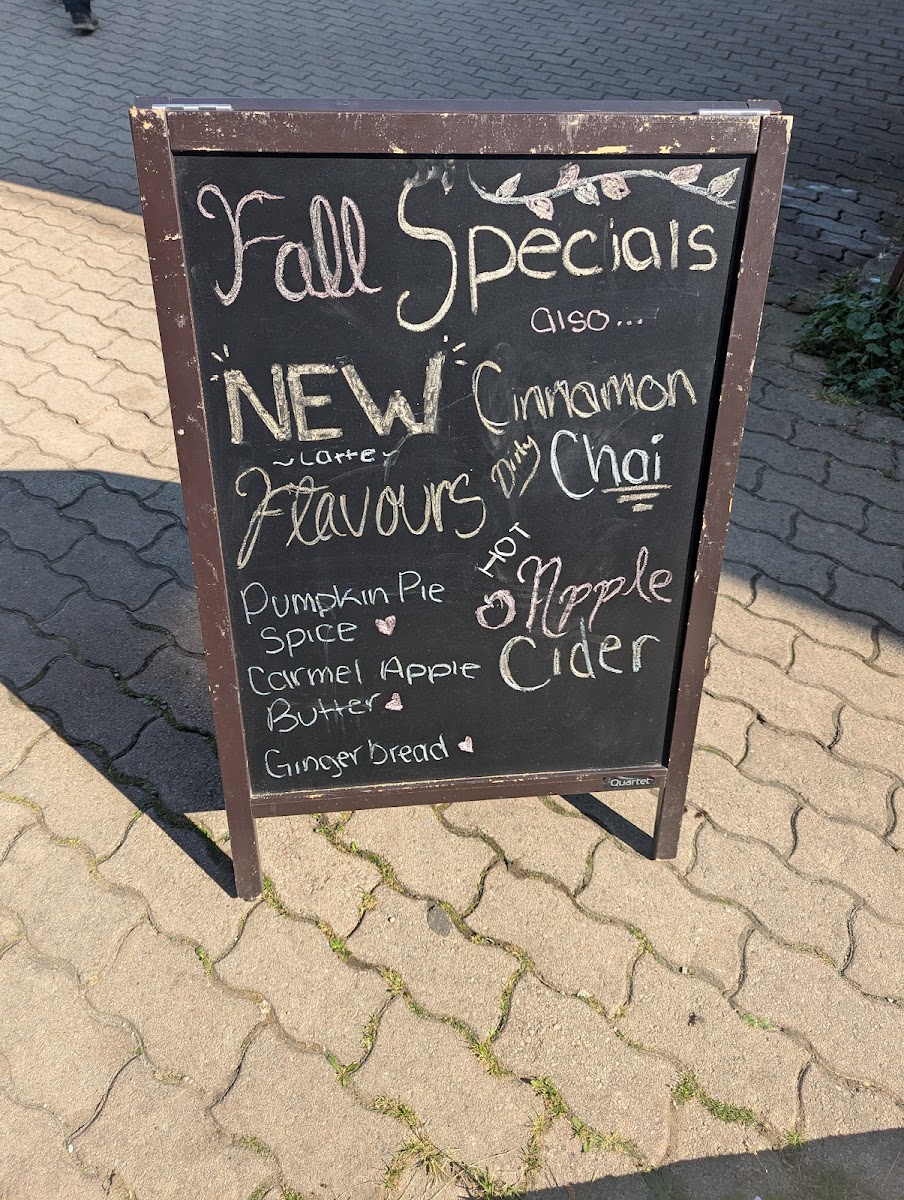 Fall Specials
also...
NEW
~Latte~
Flavours
Pumpkin Pie
Spice
Carmel Apple
Butter
Gingerbread
Cinnamon
Dirty Chai
HOT
Apple
Cider
Quartet